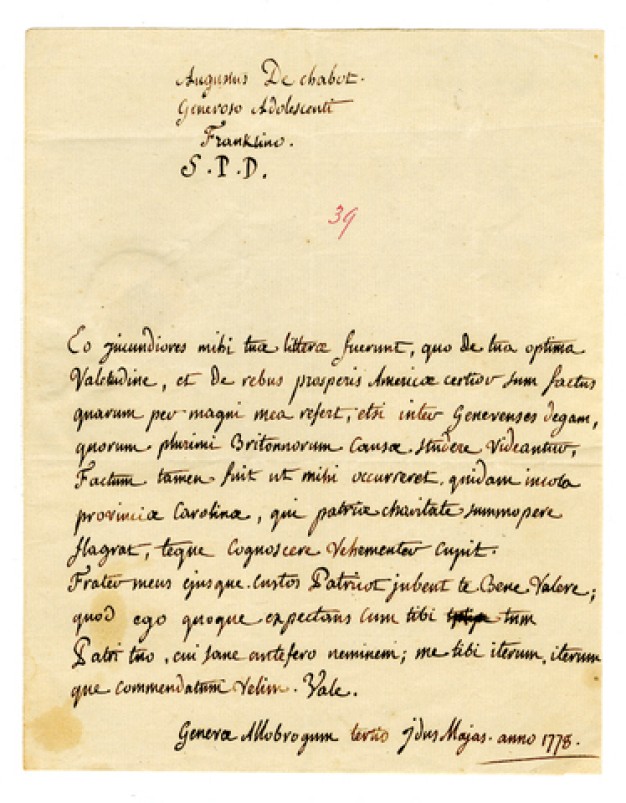 Augustus De chabot.
Generoso Adolescenti
Franklino.
S.P.D.
39
Eo jucundiores mihi tuæ litteræ fuerunt, quo de tua optima
Valetudine, et de rebus prosperis Americæ certior sum factus
quarum per magni mea refert, etsi inter Genevenses degam,
quorum plurimi Britonnorum Causæ studere Videantur,
Factum tamen fuit ut mihi occurreret quidam incola
provinciæ Carolinæ, qui patriæ charitate summopere
flagrat, teque Cognoscere Vehementer Cupit.
Frater meus ejusque Custos Patricot jubent te Bene Valere;
quod ego quoque expectans Cum tibi tum
Patri tuo, cui sane antefero neminem; me tibi iterum, iterum
que commendatum Velim. Vale.
Genevæ Allobrogum tertio jdus Majas. anno 1778.